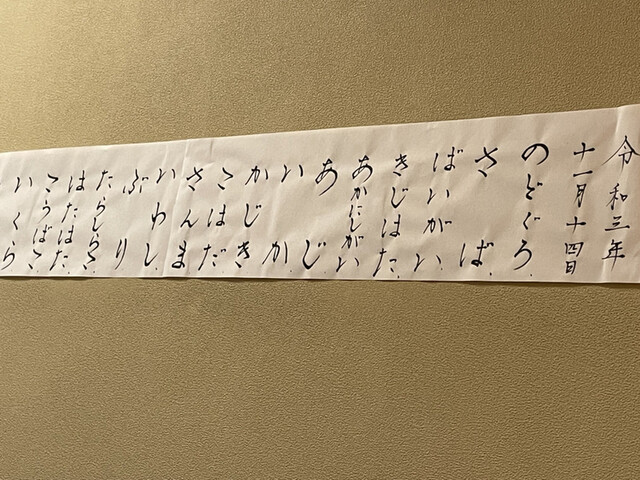 令和三年
十一月十四日
のどぐろ
さば
ばいがい
きじはた
あかにしがい
あじ
いか
かじき
こはだ
さんま
いわし
ぶり
たらしらこ
はたはた
こうばこ
いくら